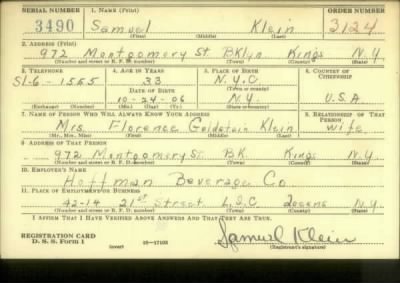 SERIAL NUMBER 1. NAME (Print) ORDER NUMBER
3490 Samuel Klein 3124
(First) (Middle) (Last)
2. ADDRESS (Print)
972 Montgomery St. BKlyn Kings N.Y
(Number and street or R. F. D. number) (Town) (County) (State)
3. TELEPHONE 4. AGE IN YEARS 5. PLACE OF BIRTH 6. COUNTRY OF CITIZENSHIP
Sl-6-1555 33 N.Y.C.
(Town or county)
DATE OF BIRTH
10-24-06 N.Y. U.S.A
(Exchange) (Number) (Mo.) (Day) (Yr.) (State or country)
7. NAME OF PERSON WHO WILL ALWAYS KNOW YOUR ADDRESS 8. RELATIONSHIP OF THAT PERSON
Mrs. Florence Goldstein Klein wife
(Mr., Mrs., Miss) (First) (Middle) (Last)
9. ADDRESS OF THAT PERSON
972 Montgomery St. BK. Kings N.Y
(Number and street or R. F. D. number) (Town) (County) (State)
10. EMPLOYER'S NAME
Hoffman Beverage Co.
11. PLACE OF EMPLOYMENT OR BUSINESS
42-14 21st Street L.I.C Queens N.Y
(Number and street or R. F. D. number) (Town) (County) (State)
I AFFIRM THAT I HAVE VERIFIED ABOVE ANSWERS AND THAT THEY ARE TRUE.
REGISTRATION CARD
D. S. S. Form 1 (over) 16-17105 Samuel Klein
(Registrant's signature)